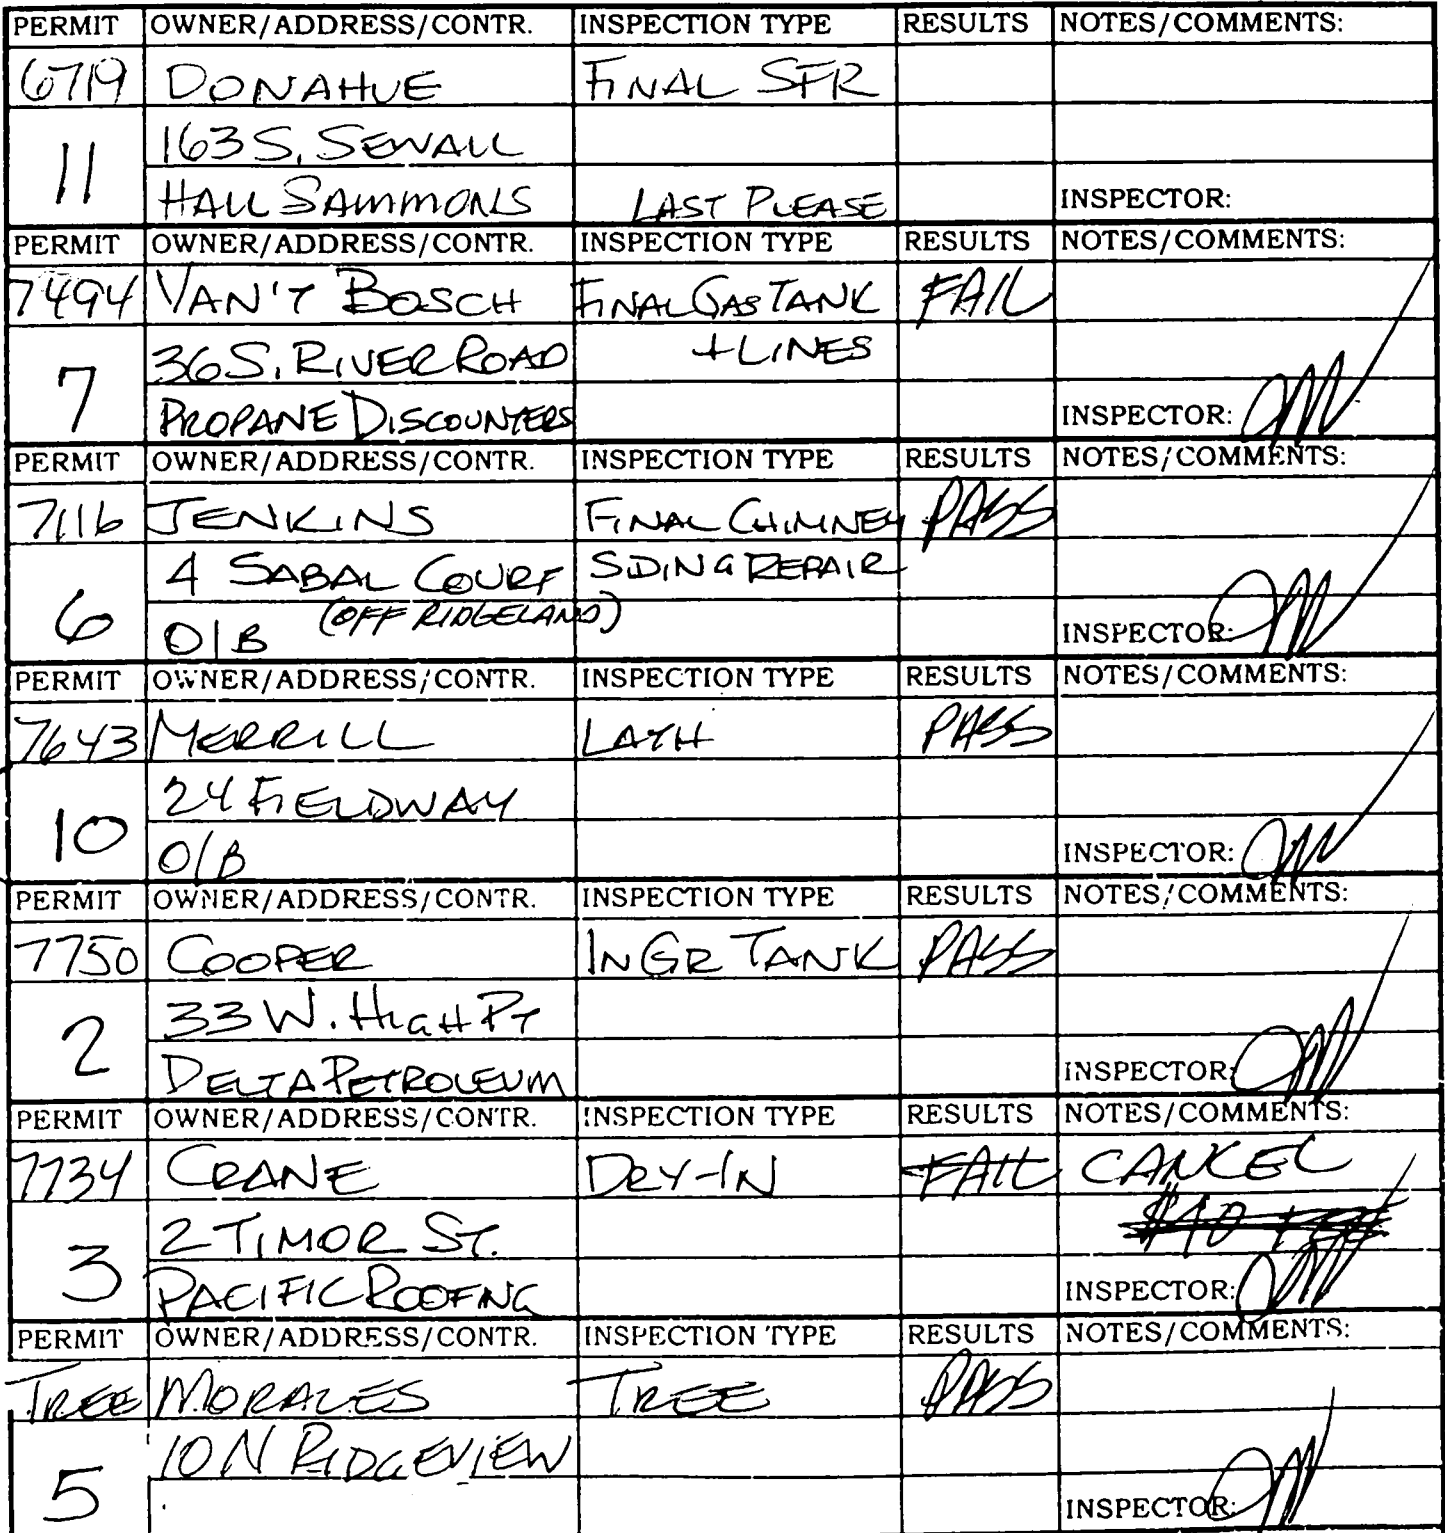 PERMIT OWNER/ADDRESS/CONTR. INSPECTION TYPE RESULTS NOTES/COMMENTS:
6719 DONAHUE FINAL SFR
11 163 S. SEWALL
HALL SAMMONS LAST PLEASE INSPECTOR:
PERMIT OWNER/ADDRESS/CONTR. INSPECTION TYPE RESULTS NOTES/COMMENTS:
7494 VAN'T BOSCH FINAL GAS TANK FAIL
7 36 S. RIVER ROAD + LINES
PROPANE DISCOUNTERS INSPECTOR:
PERMIT OWNER/ADDRESS/CONTR. INSPECTION TYPE RESULTS NOTES/COMMENTS:
7116 JENKINS FINAL CHIMNEY PASS
6 4 SABAL COURT SIDING REPAIR
(OFF RIDGELAND)
O/B INSPECTOR:
PERMIT OWNER/ADDRESS/CONTR. INSPECTION TYPE RESULTS NOTES/COMMENTS:
7643 MERRILL LATH PASS
10 24 FIELDWAY
O/B INSPECTOR:
PERMIT OWNER/ADDRESS/CONTR. INSPECTION TYPE RESULTS NOTES/COMMENTS:
7750 COOPER IN GR TANK PASS
2 33 W. HIGH PT
DELTA PETROLEUM INSPECTOR:
PERMIT OWNER/ADDRESS/CONTR. INSPECTION TYPE RESULTS NOTES/COMMENTS:
7734 CRANE DRY-IN FAIL CANCEL
3 2 TIMOR ST. $40
PACIFIC ROOFING INSPECTOR:
PERMIT OWNER/ADDRESS/CONTR. INSPECTION TYPE RESULTS NOTES/COMMENTS:
TREE MORALES TREE PASS
5 10 N RIDGEVIEW
INSPECTOR: